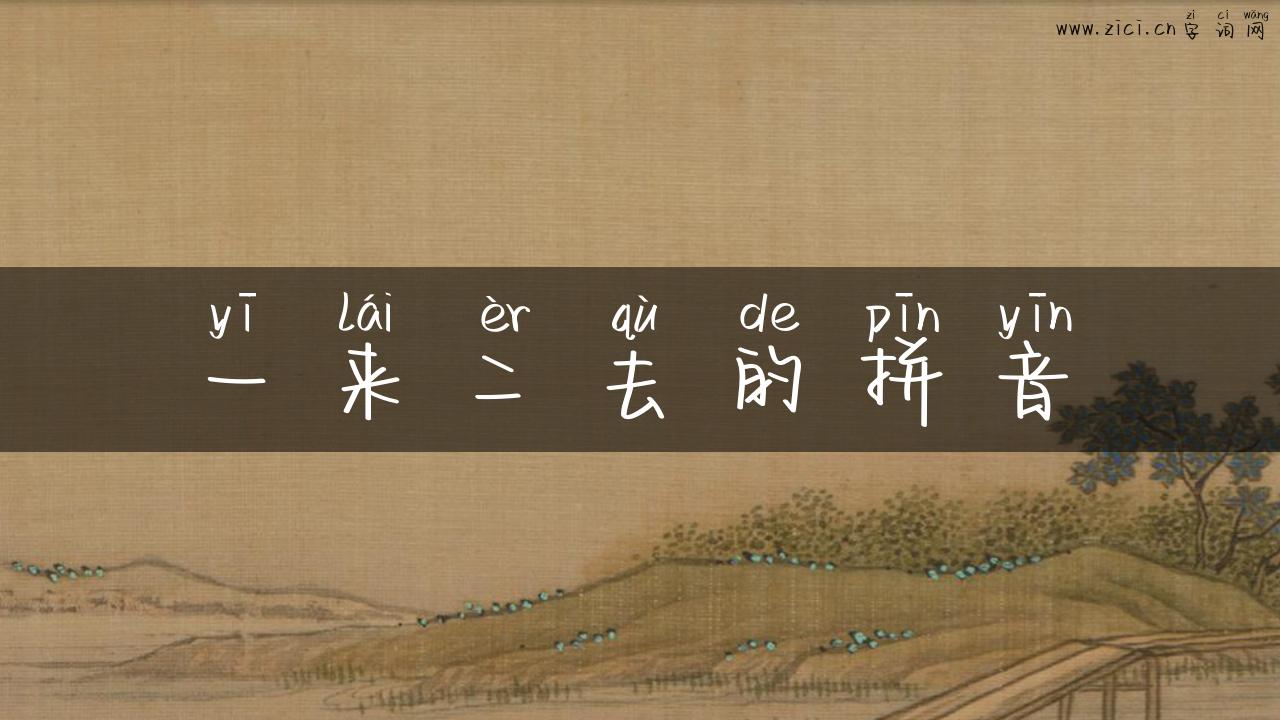 zì cí wǎng
www.zici.cn字词网
yī lái èr qù de pīn yīn
一来二去的拼音